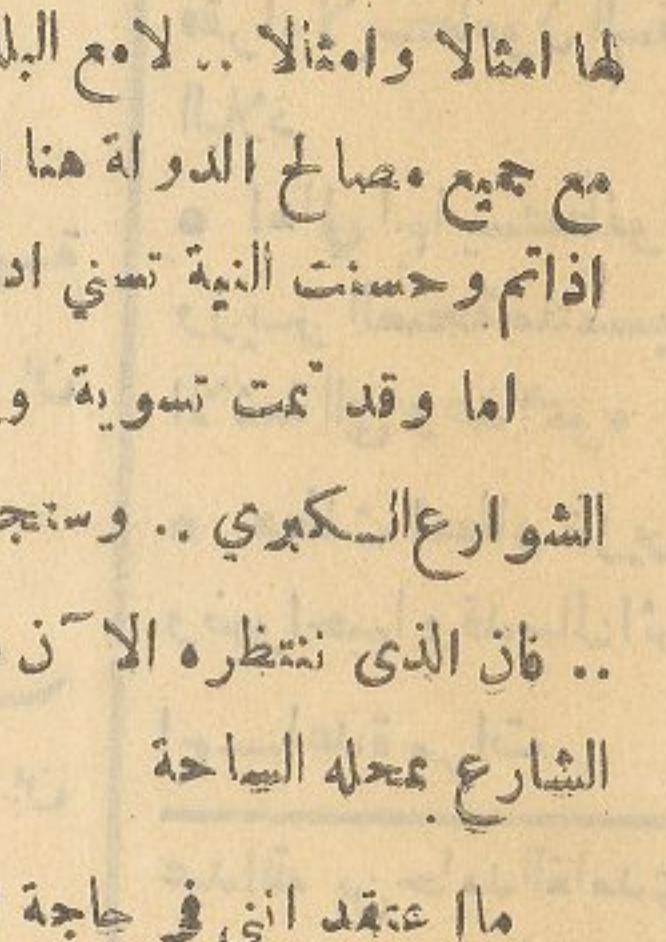 لها امثالا وامثالا .. لامع البل
مع جميع مصالح الدولة هنا
اذاتم وحسنت النية تسني اد
اما وقد تمت تسوية و
الشوارع الكبري .. وستجـ
.. فان الذى ننتظره الآن
الشارع بمحله الساحة
مااعتقد انني في حاجة